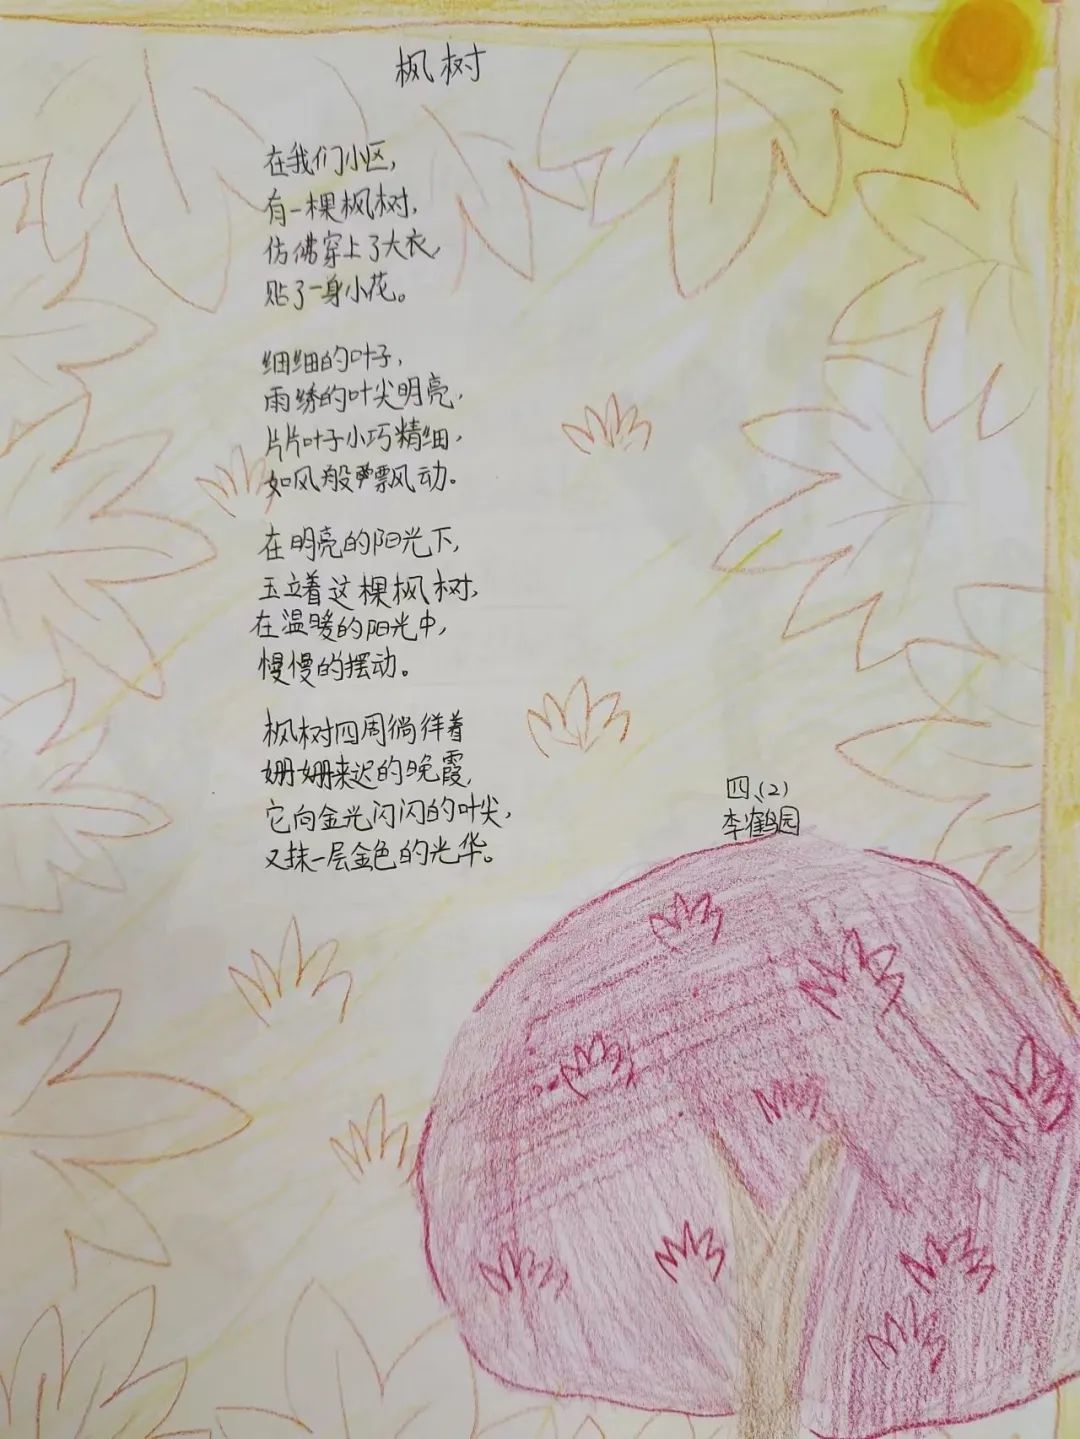 枫树
在我们小区，
有一棵枫树，
仿佛穿上了大衣，
贴了一身小花。
细细的叶子，
雨绣的叶尖明亮，
片片叶子小巧精细，
如风般飘动。
在明亮的阳光下，
玉立着这棵枫树，
在温暖的阳光中，
慢慢的摆动。
枫树四周徜徉着
姗姗来迟的晚霞，
它向金光闪闪的叶尖，
又抹一层金色的光华。
四、(2)
李鹤园